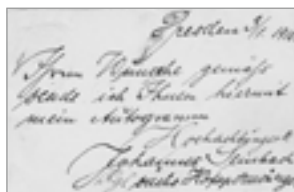 Dresden 3/1. 190
Ihrem Wunsche gemäss
sende ich Ihnen hiermit
mein Autogramm
Hochachtungsvoll
Johannes
Sächs Hofopernsänger